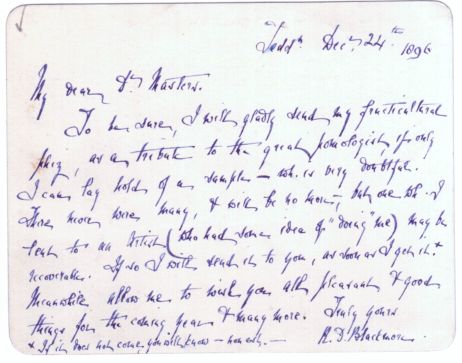 Tedd^n. Dec^r. 24^th. 1896
My dear D^r Masters.
To be sure, I will gladly send my fructicultural
phiz, as a tribute to the great pomologist, if only
I can lay hold of a sample — wh. is very doubtful.
There never were many, & will be no more; but one wh. I
lent to an Artist (who had some idea of "doing" me) may be
recoverable. If so I will send it to you, as soon as I get it.
Meanwhile allow me to wish you all pleasant & good
things for the coming year & many more. Truly yours
R. D. Blackmore.
& If it does not come, you will know — honestly. —